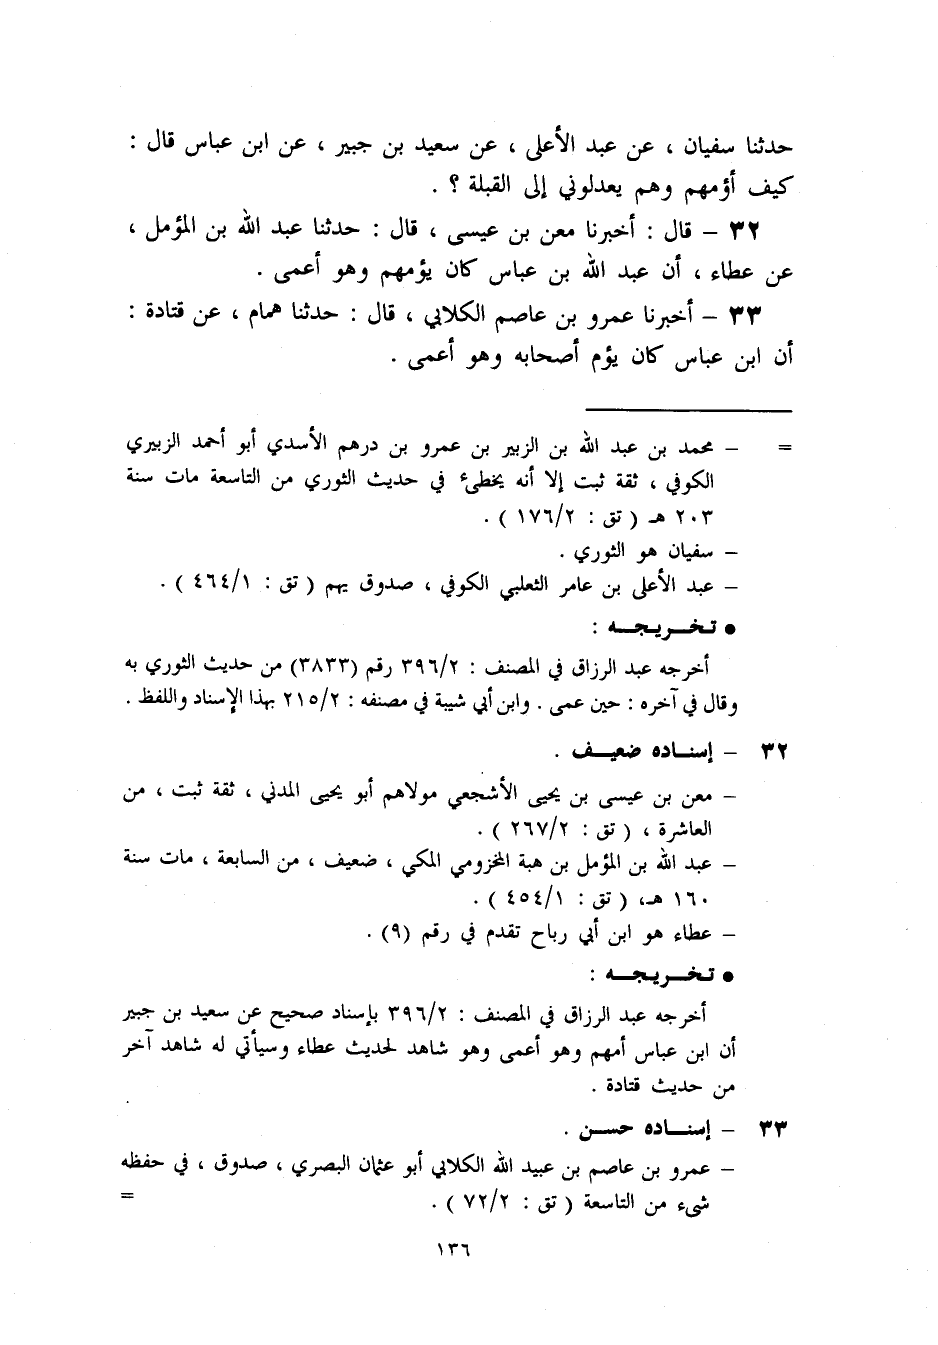 حدثنا سفيان ، عن عبد الأعلى ، عن سعيد بن جبير ، عن ابن عباس قال :
كيف أؤمهم وهم يعدلوني إلى القبلة ؟ .
٣٢ – قال : أخبرنا معن بن عيسى ، قال : حدثنا عبد الله بن المؤمل ،
عن عطاء ، أن عبد الله بن عباس كان يؤمهم وهو أعمى .
٣٣ – أخبرنا عمرو بن عاصم الكلابي ، قال : حدثنا همام ، عن قتادة :
أن ابن عباس كان يؤم أصحابه وهو أعمى .
= – محمد بن عبد الله بن الزبير بن عمرو بن درهم الأسدي أبو أحمد الزبيري
الكوفي ، ثقة ثبت إلا أنه يخطىء في حديث الثوري من التاسعة مات سنة
٢٠٣ هـ ( تق : ١٧٦/٢ ) .
– سفيان هو الثوري .
– عبد الأعلى بن عامر الثعلبي الكوفي ، صدوق يهم ( تق : ٤٦٤/١ ) .
● تخـــريجــه :
أخرجه عبد الرزاق في المصنف : ٣٩٦/٢ رقم (٣٨٣٣) من حديث الثوري به
وقال في آخره : حين عمى . وابن أبي شيبة في مصنفه : ٢١٥/٢ بهذا الإسناد واللفظ .
٣٢ – إسنــاده ضعيــف .
– معن بن عيسى بن يحيى الأشجعي مولاهم أبو يحيى المدني ، ثقة ثبت ، من
العاشرة ، ( تق : ٢٦٧/٢ ) .
– عبد الله بن المؤمل بن هبة المخزومي المكي ، ضعيف ، من السابعة ، مات سنة
١٦٠ هـ، ( تق : ٤٥٤/١ ) .
– عطاء هو ابن أبي رباح تقدم في رقم (٩) .
● تخـــريجــه :
أخرجه عبد الرزاق في المصنف : ٣٩٦/٢ بإسناد صحيح عن سعيد بن جبير
أن ابن عباس أمهم وهو أعمى وهو شاهد لحديث عطاء وسيأتي له شاهد آخر
من حديث قتادة .
٣٣ – إسنــاده حســن .
– عمرو بن عاصم بن عبيد الله الكلابي أبو عثمان البصري ، صدوق ، في حفظه
شىء من التاسعة ( تق : ٧٢/٢ ) . =
١٣٦